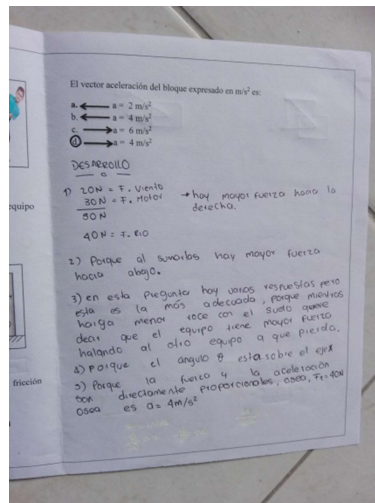 El vector aceleración del bloque expresado en m/s² es:
a. ← a = 2 m/s²
b. ← a = 4 m/s²
c. → a = 6 m/s²
d → a = 4 m/s²
DESARROLLO
1) 20N = F. Viento
30N = F. Motor
50N
→ hay mayor fuerza hacia la
derecha.
40N = F. RIO
equipo
2) Porque al sumarlas hay mayor fuerza
hacia abajo.
3) en esta pregunta hay varias respuestas pero
esta es la más adecuada, porque mientras
haiga menor roce con el suelo quiere
decir que el equipo tiene mayor fuerza
halando al otro equipo a que pierda.
4) porque el angulo θ esta sobre el eje x
fricción
5) Porque la fuerza y la aceleración
son directamente proporcionales, osea, F = 40N
osea es a = 4m/s²